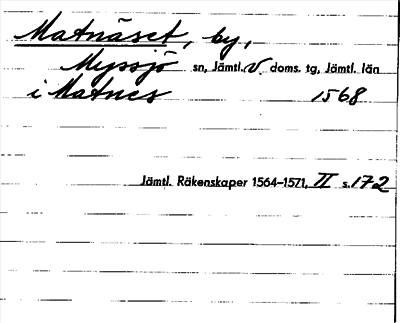 Matnäset, by,
Myssjö sn, Jämtl. V. doms. tg, Jämtl. län
i Matnes 1568
Jämtl. Räkenskaper 1564-1571, II s. 172